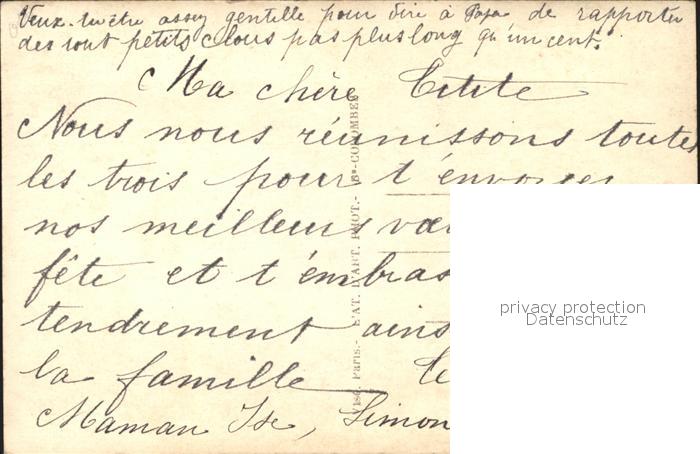 Veux-tu être assez gentille pour dire à Papa de rapporter
des tout petits clous pas plus long qu'un cent.
Ma chère Titite
Nous nous réunissons toutes
les trois pour t'envoyer
nos meilleurs
fête et t'embras
tendrement ains
la famille
Maman Ise, Simon
Visé. Paris.- LAT. D'ART. PHOT.- Bs-COLOMBES
privacy protection
Datenschutz